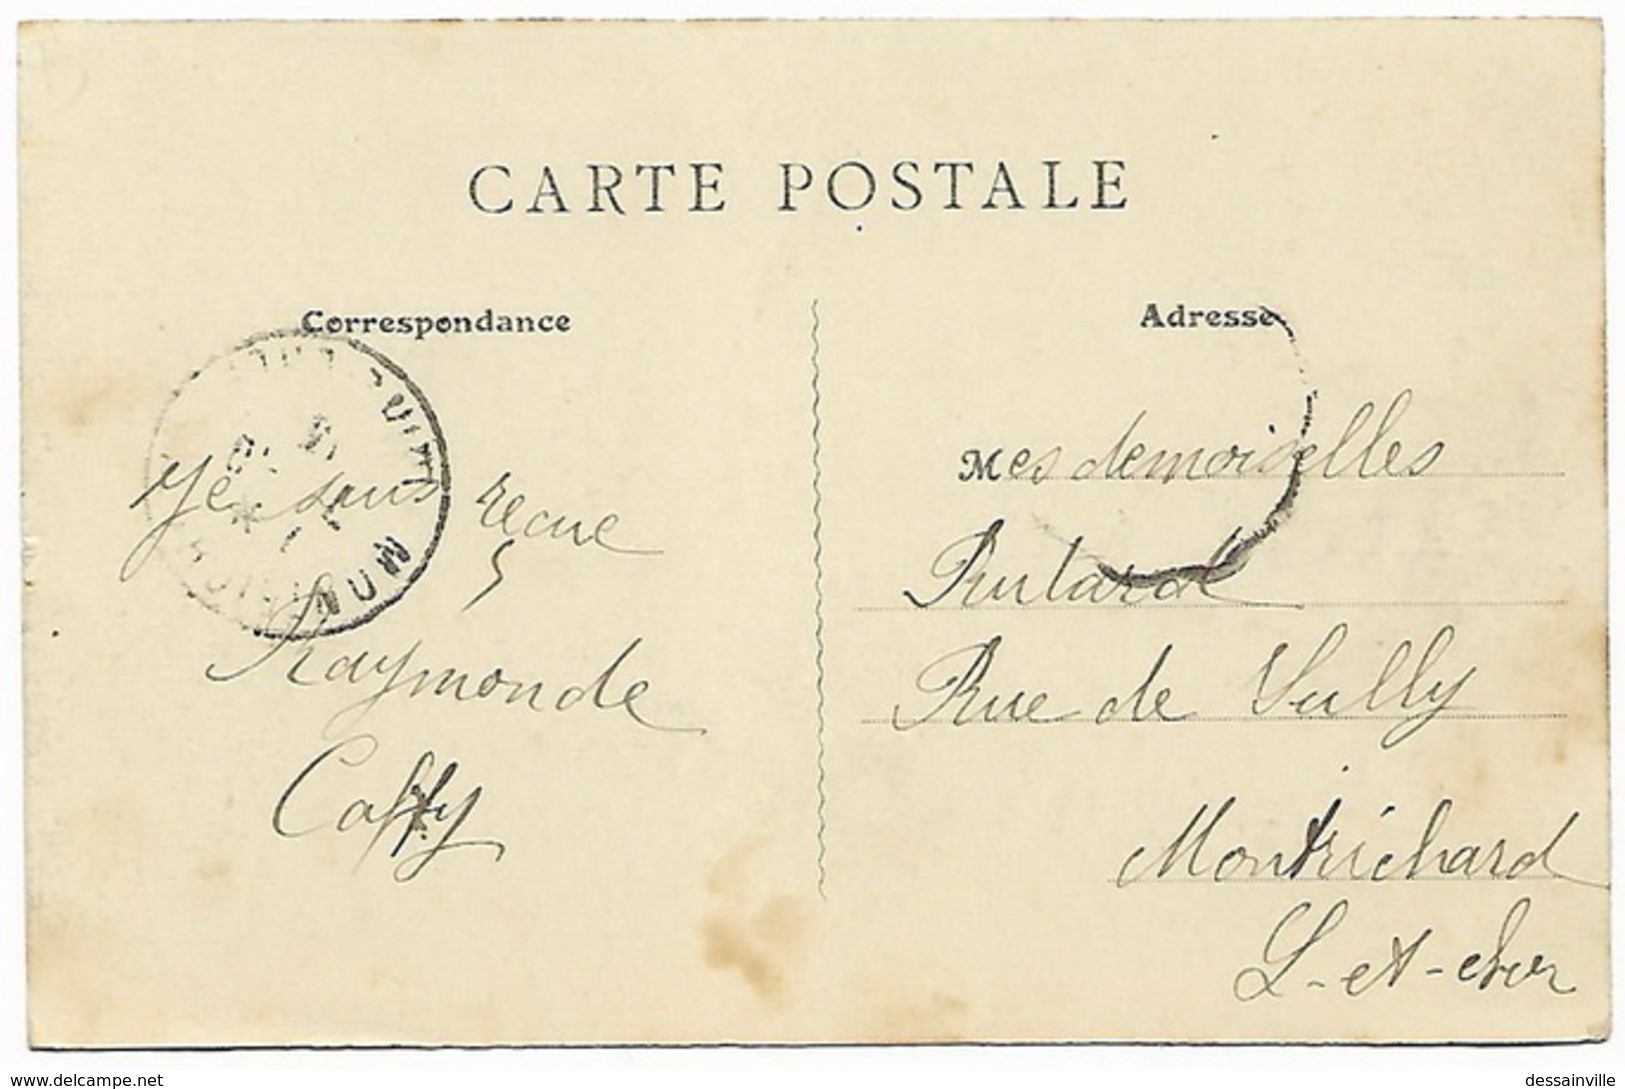 CARTE POSTALE
Correspondance
Je suis reçue
Raymonde
Caffy
Adresse
Mesdemoiselles
Rutard
Rue de Sully
Montrichard
L-et-cher
www.delcampe.net
dessainville